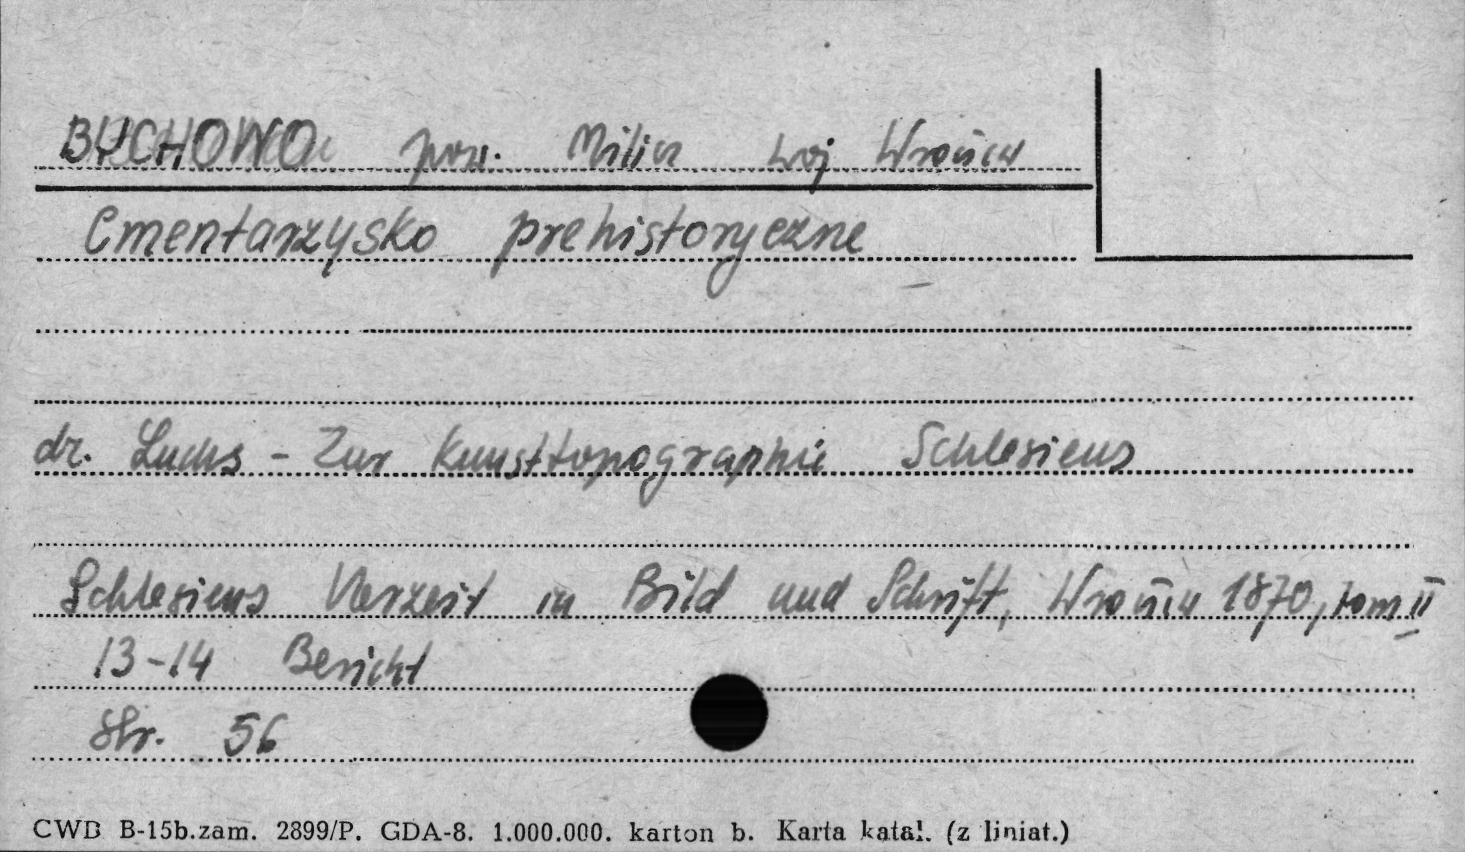 BYCHOWO pow. Milicz woj Wrocław
Cmentarzysko prehistoryczne
dr. Luchs - Zur Kunsttopographie Schlesiens
Schlesiens Vorzeit in Bild und Schrift, Wrocław 1870, tom II
13-14 Bericht
Str. 56
CWD B-15b.zam. 2899/P. GDA-8. 1.000.000. karton b. Karta katal. (z liniat.)